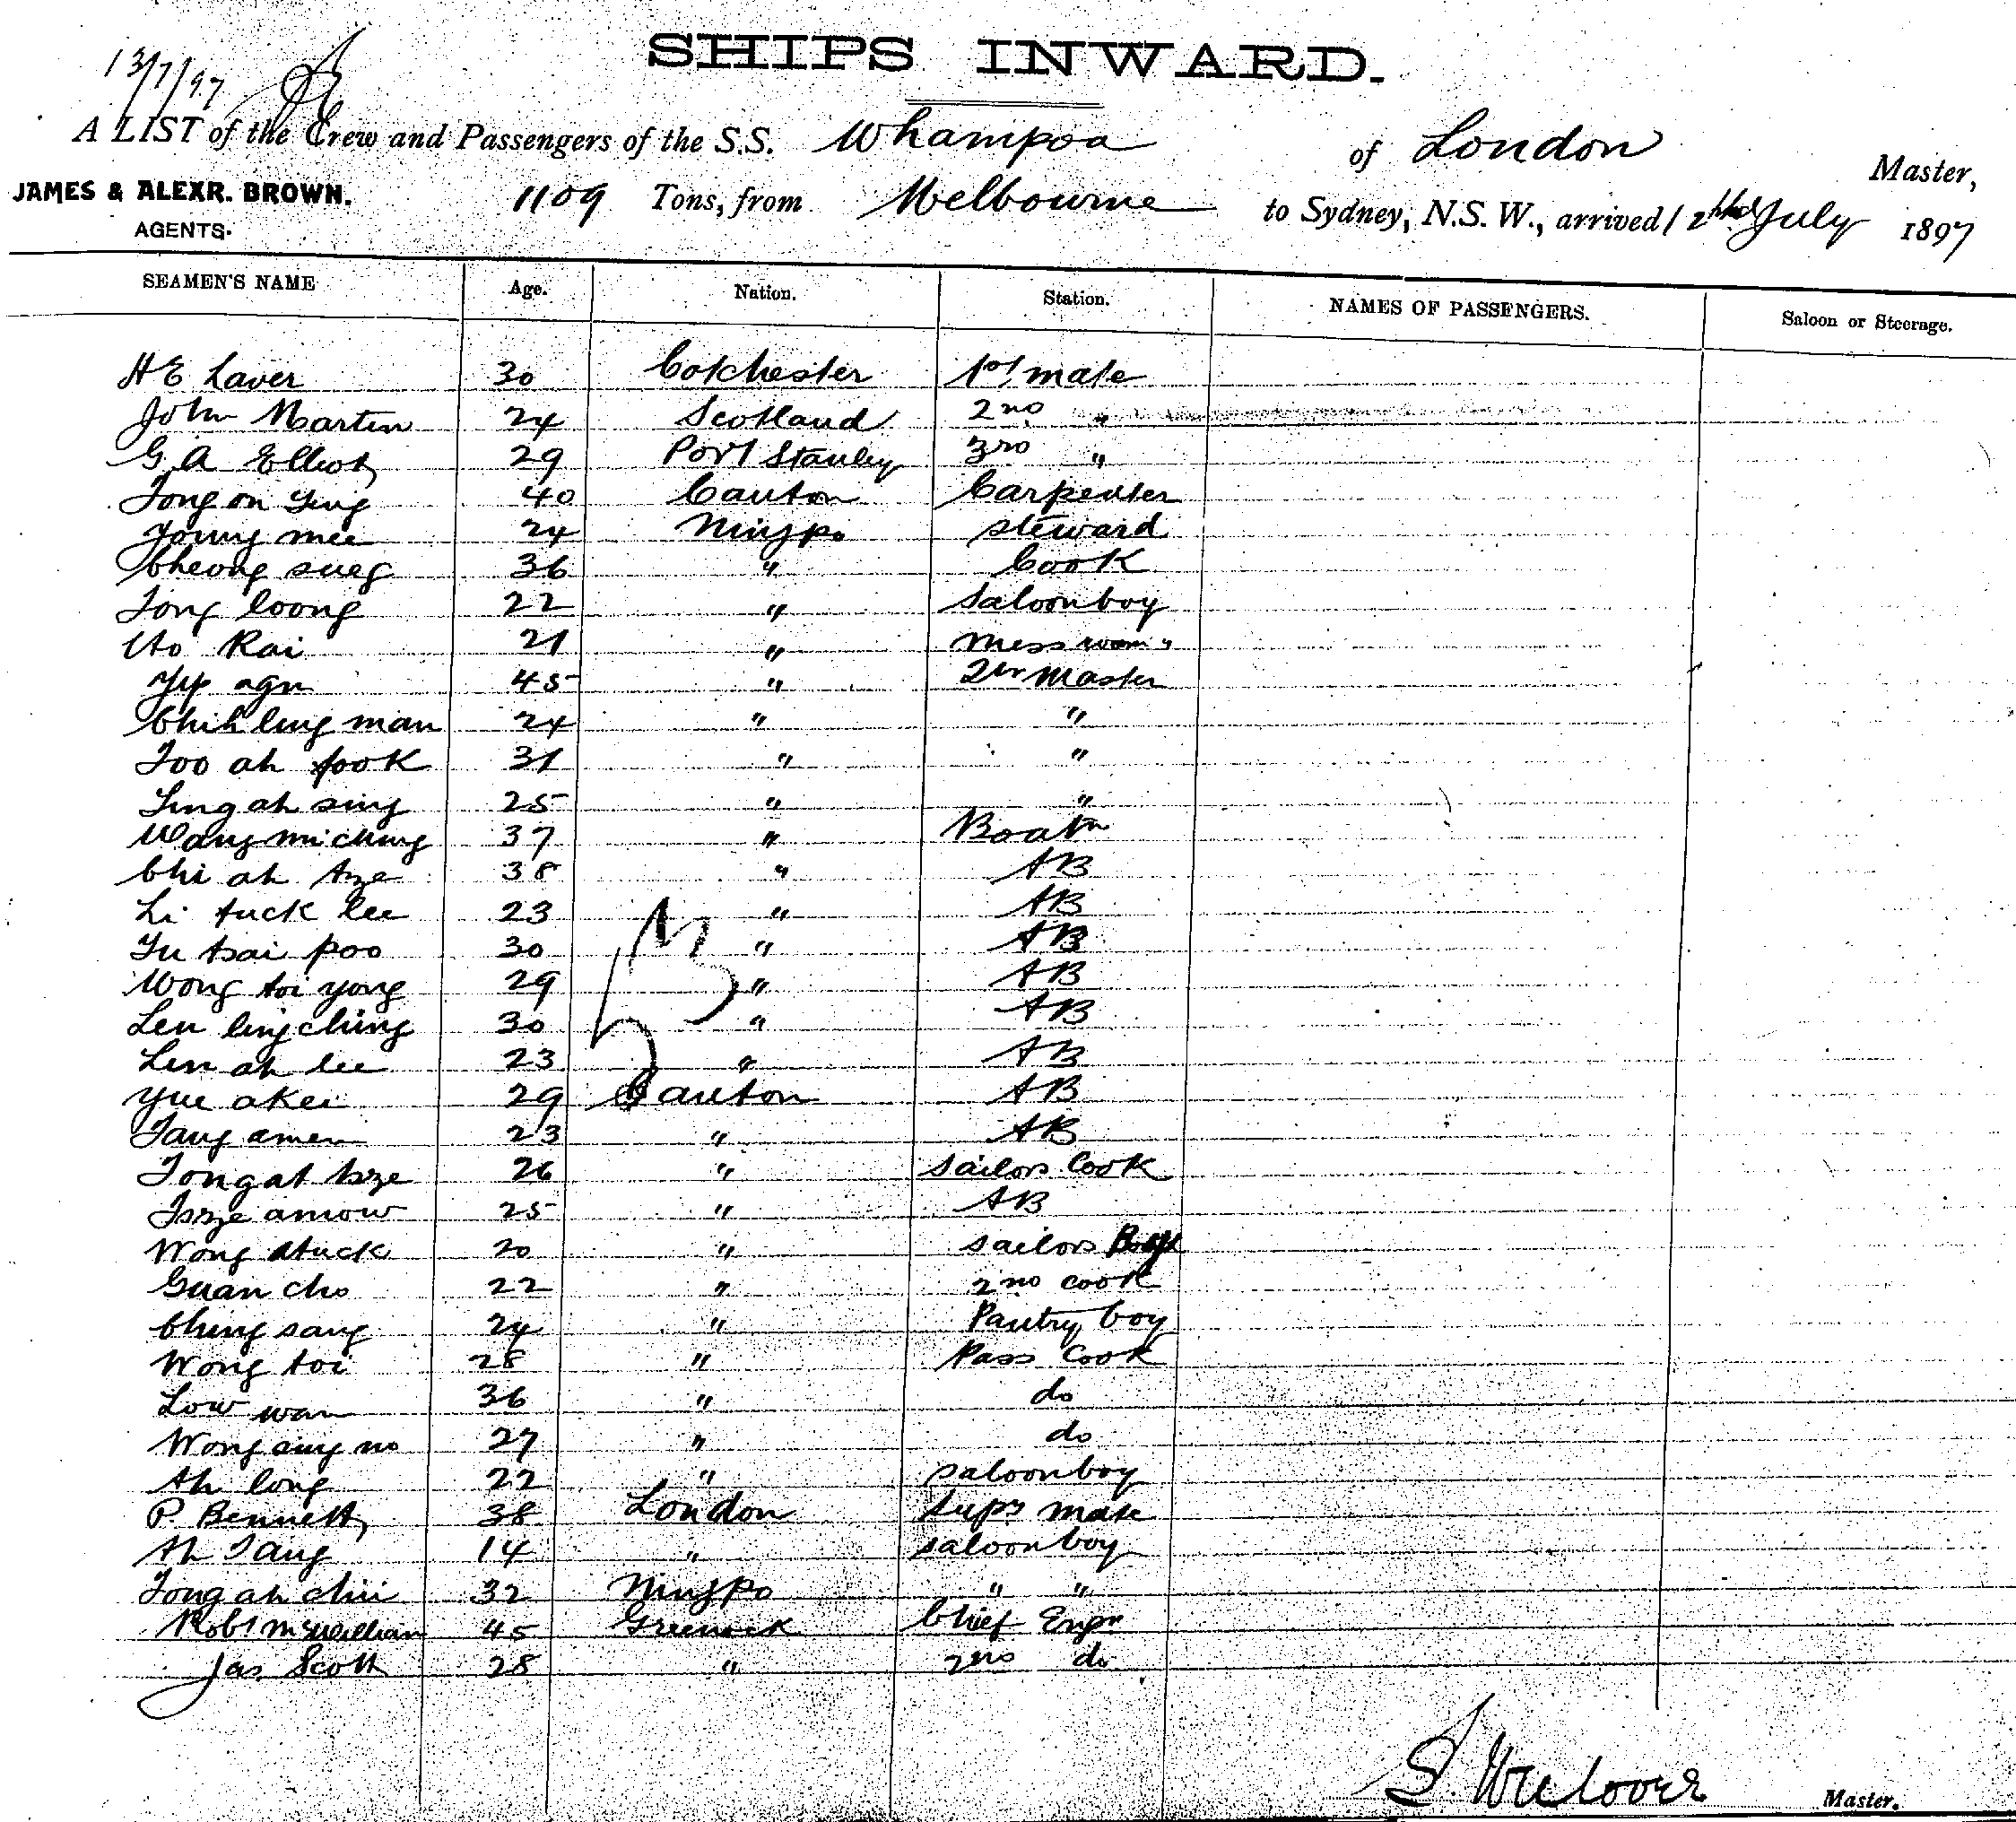 SHIPS INWARD.
13/7/97
A LIST of the Crew and Passengers of the S.S. Whampoa of London Master,
JAMES & ALEXR. BROWN. 1109 Tons, from Melbourne to Sydney, N.S.W., arrived 12th July 1897
AGENTS.
SEAMEN'S NAME Age. Nation. Station. NAMES OF PASSENGERS. Saloon or Steerage.
H E Laver 30 Colchester 1st mate
John Martin 24 Scotland 2nd "
G A Elliott 29 Port Stanley 3rd "
Tong on Ying 40 Canton Carpenter
Young mee 24 Ningpo steward
Cheong sueg 36 " Cook
Tong loong 22 " Saloon boy
Ho Kai 21 " mess room "
Yip agn 45 " Qtr Master
Chih ling man 24 " "
Foo ah fook 31 " "
Ling ah sing 25 " "
Wang mi ching 37 " Boatn
Chi ah tze 38 " AB
Li tuck lee 23 " AB
Yu tsai poo 30 " AB
Wong toi yong 29 " AB
Len ling ching 30 " AB
Len ah lee 23 " AB
Yue akei 29 Canton AB
Tang amen 23 " AB
Tong at tsze 26 " sailors Cook
Tsze amow 25 " AB
Wong atuck 20 " sailors Boy
Guan cho 22 " 2nd cook
Ching sang 24 " Pantry boy
Wong toi 28 " Pass Cook
Low wan 36 " do
Wong sing no 27 " do
Ah long 22 " saloon boy
P. Bennett 38 London Supy mate
Ah Tang 14 " saloon boy
Tong ah chii 32 Ningpo " "
Robt McWilliam 45 Greenock Chief Engr
Jas Scott 28 " 2nd do
Master.